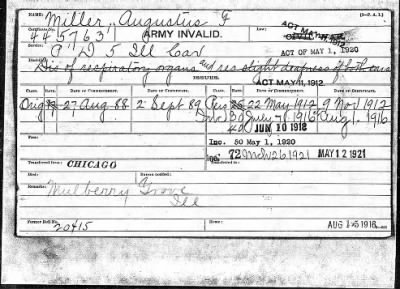 NAME: Miller, Augustus G [3-P.A.I.]
Certificate No. ARMY INVALID. Law: ACT MAY 11, 1912
445763
G 5 Ill Cav ACT OF MAY 1, 1920
Dis of respiratory organs and res slight deafness of both ears
ISSUES. ACT MAY 11, 1912
CLASS. RATE. DATE OF COMMENCEMENT. DATE OF CERTIFICATE. CLASS. RATE. DATE OF COMMENCEMENT. DATE OF CERTIFICATE.
Orig 27 Aug. 88 2 Sept 89 22 May 1912 9 Nov 1912
Inc 30 July 7 1916 Aug 1, 1916
JUN 10 1918
From: Inc. 50 May 1, 1920
72 Mch 26 1921 MAY 12 1921
Transferred from: CHICAGO
Died: Bureau notified:
Remarks: Mulberry Grove
Ill
Former Roll No. 20415
AUG 1916